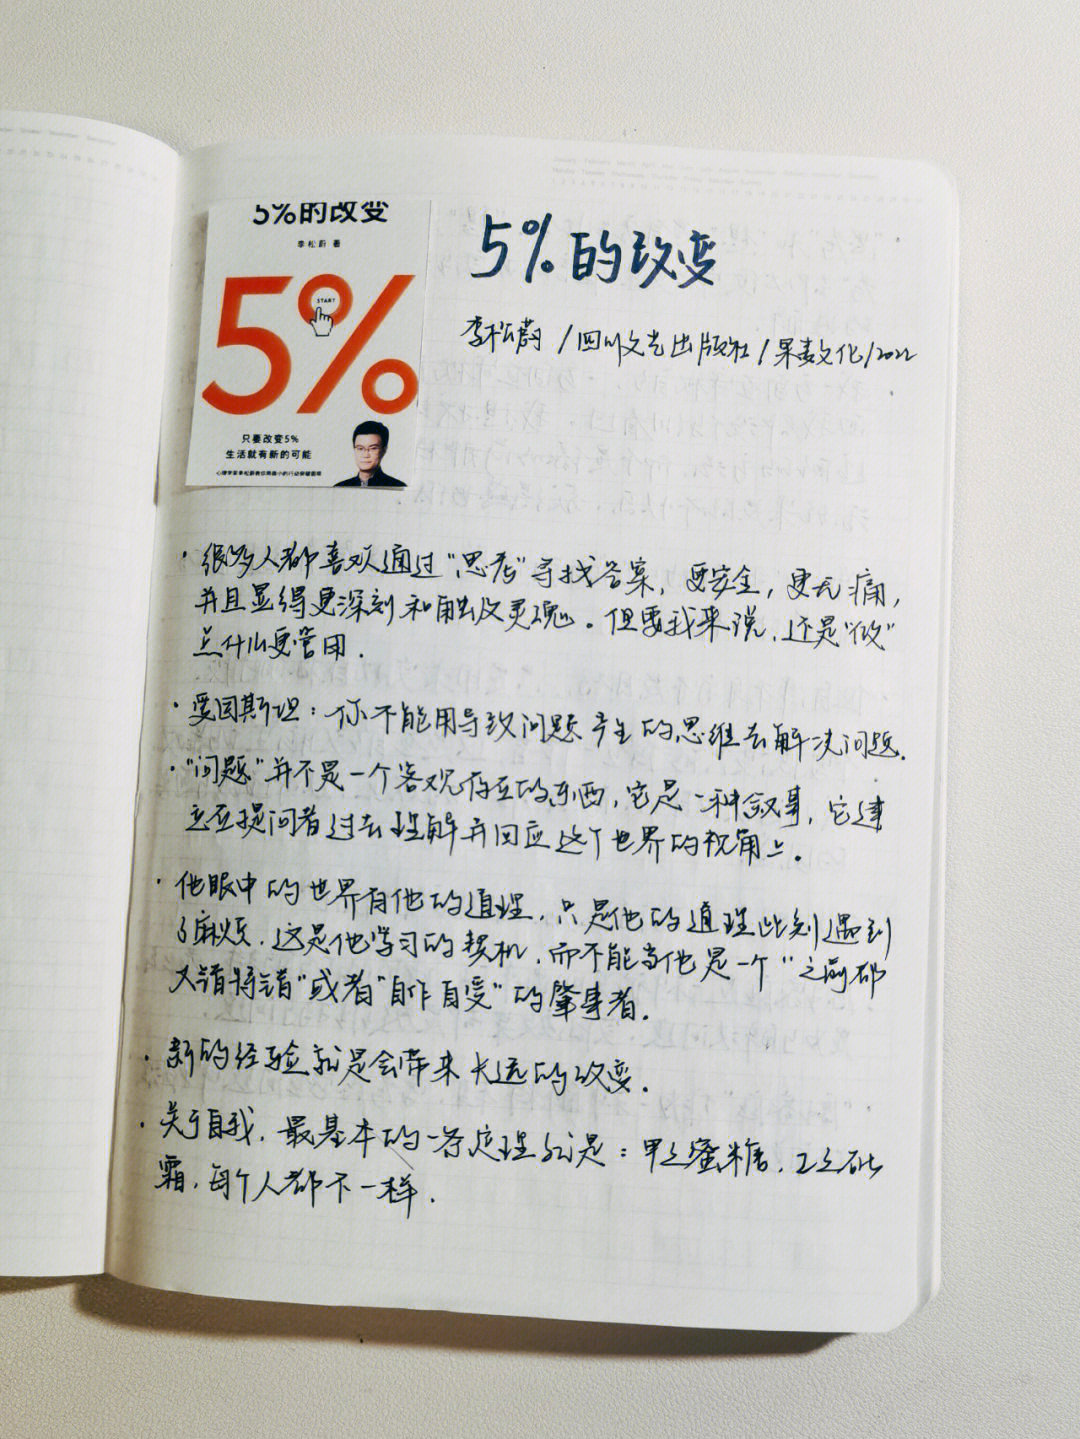 5%的改变
李松蔚 著
5%
START
只要改变5%
生活就有新的可能
5%的改变
李松蔚/四川文艺出版社/果麦文化/2022
·很多人都喜欢通过“思考”寻找答案,更安全,更无痛,
并且显得更深刻和触及灵魂。但要我来说,还是“做”
点什么更管用.
·爱因斯坦:你不能用导致问题产生的思维去解决问题.
·“问题”并不是一个客观存在的东西,它是一种叙事,它建
立在提问者过去理解并回应这个世界的视角上。
·他眼中的世界有他的道理,只是他的道理此刻遇到
了麻烦,这是他学习的契机,而不能当他是一个“之前都
又错将错”或者“自作自受”的肇事者.
·新的经验就是会带来长远的改变.
·关于自我,最基本的一条定理就是:甲之蜜糖,乙之砒
霜,每个人都不一样.